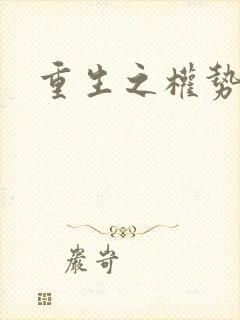 重生之權勢
嚴岢